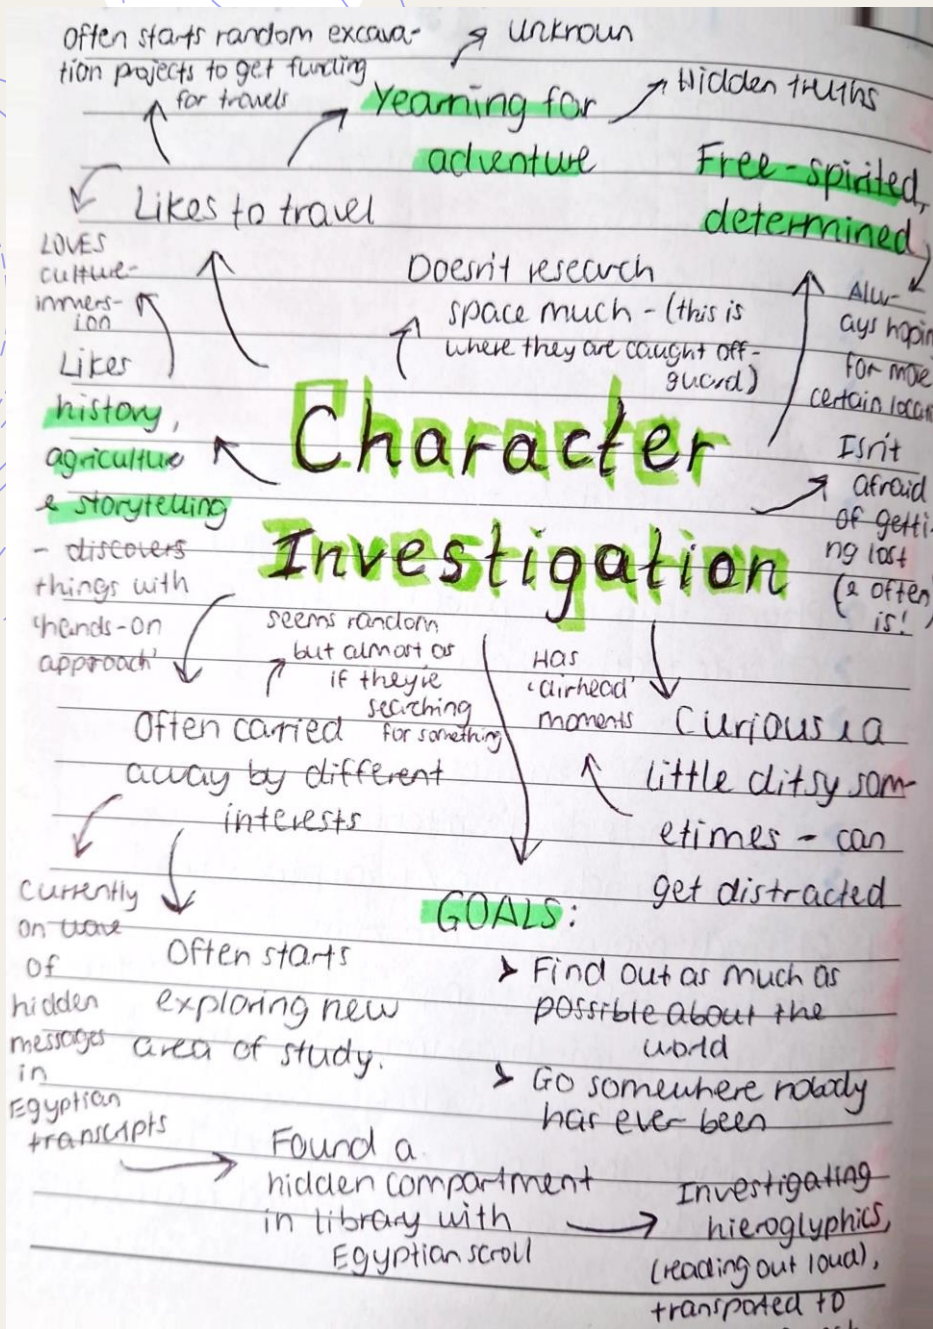 Often starts random excava-
tion projects to get funding
for travels
unknown
Yearning for
adventure
Hidden truths
Free-spirited,
determined
Likes to travel
LOVES
culture-
immers-
ion
Doesn't research
space much - (this is
where they are caught off-
guard)
Alw-
ays hopin
for more
certain locat
Likes
history,
agriculture
& storytelling
- discovers
things with
'hands-on
approach'
Character
Investigation
Isn't
afraid
of getti-
ng lost
(& often
is!
seems random
but almost as
if they're
searching
for something
Often carried
away by different
interests
Has
'airhead'
moments
Curious & a
little ditsy som-
etimes - can
get distracted
Currently
on wave
of
hidden
messages
in
Egyptian
transcripts
Often starts
exploring new
area of study.
GOALS:
➤ Find out as much as
possible about the
world
➤ Go somewhere nobody
has ever been
Found a
hidden compartment
in library with
Egyptian scroll
Investigating
hieroglyphics,
(reading out loud),
transported to